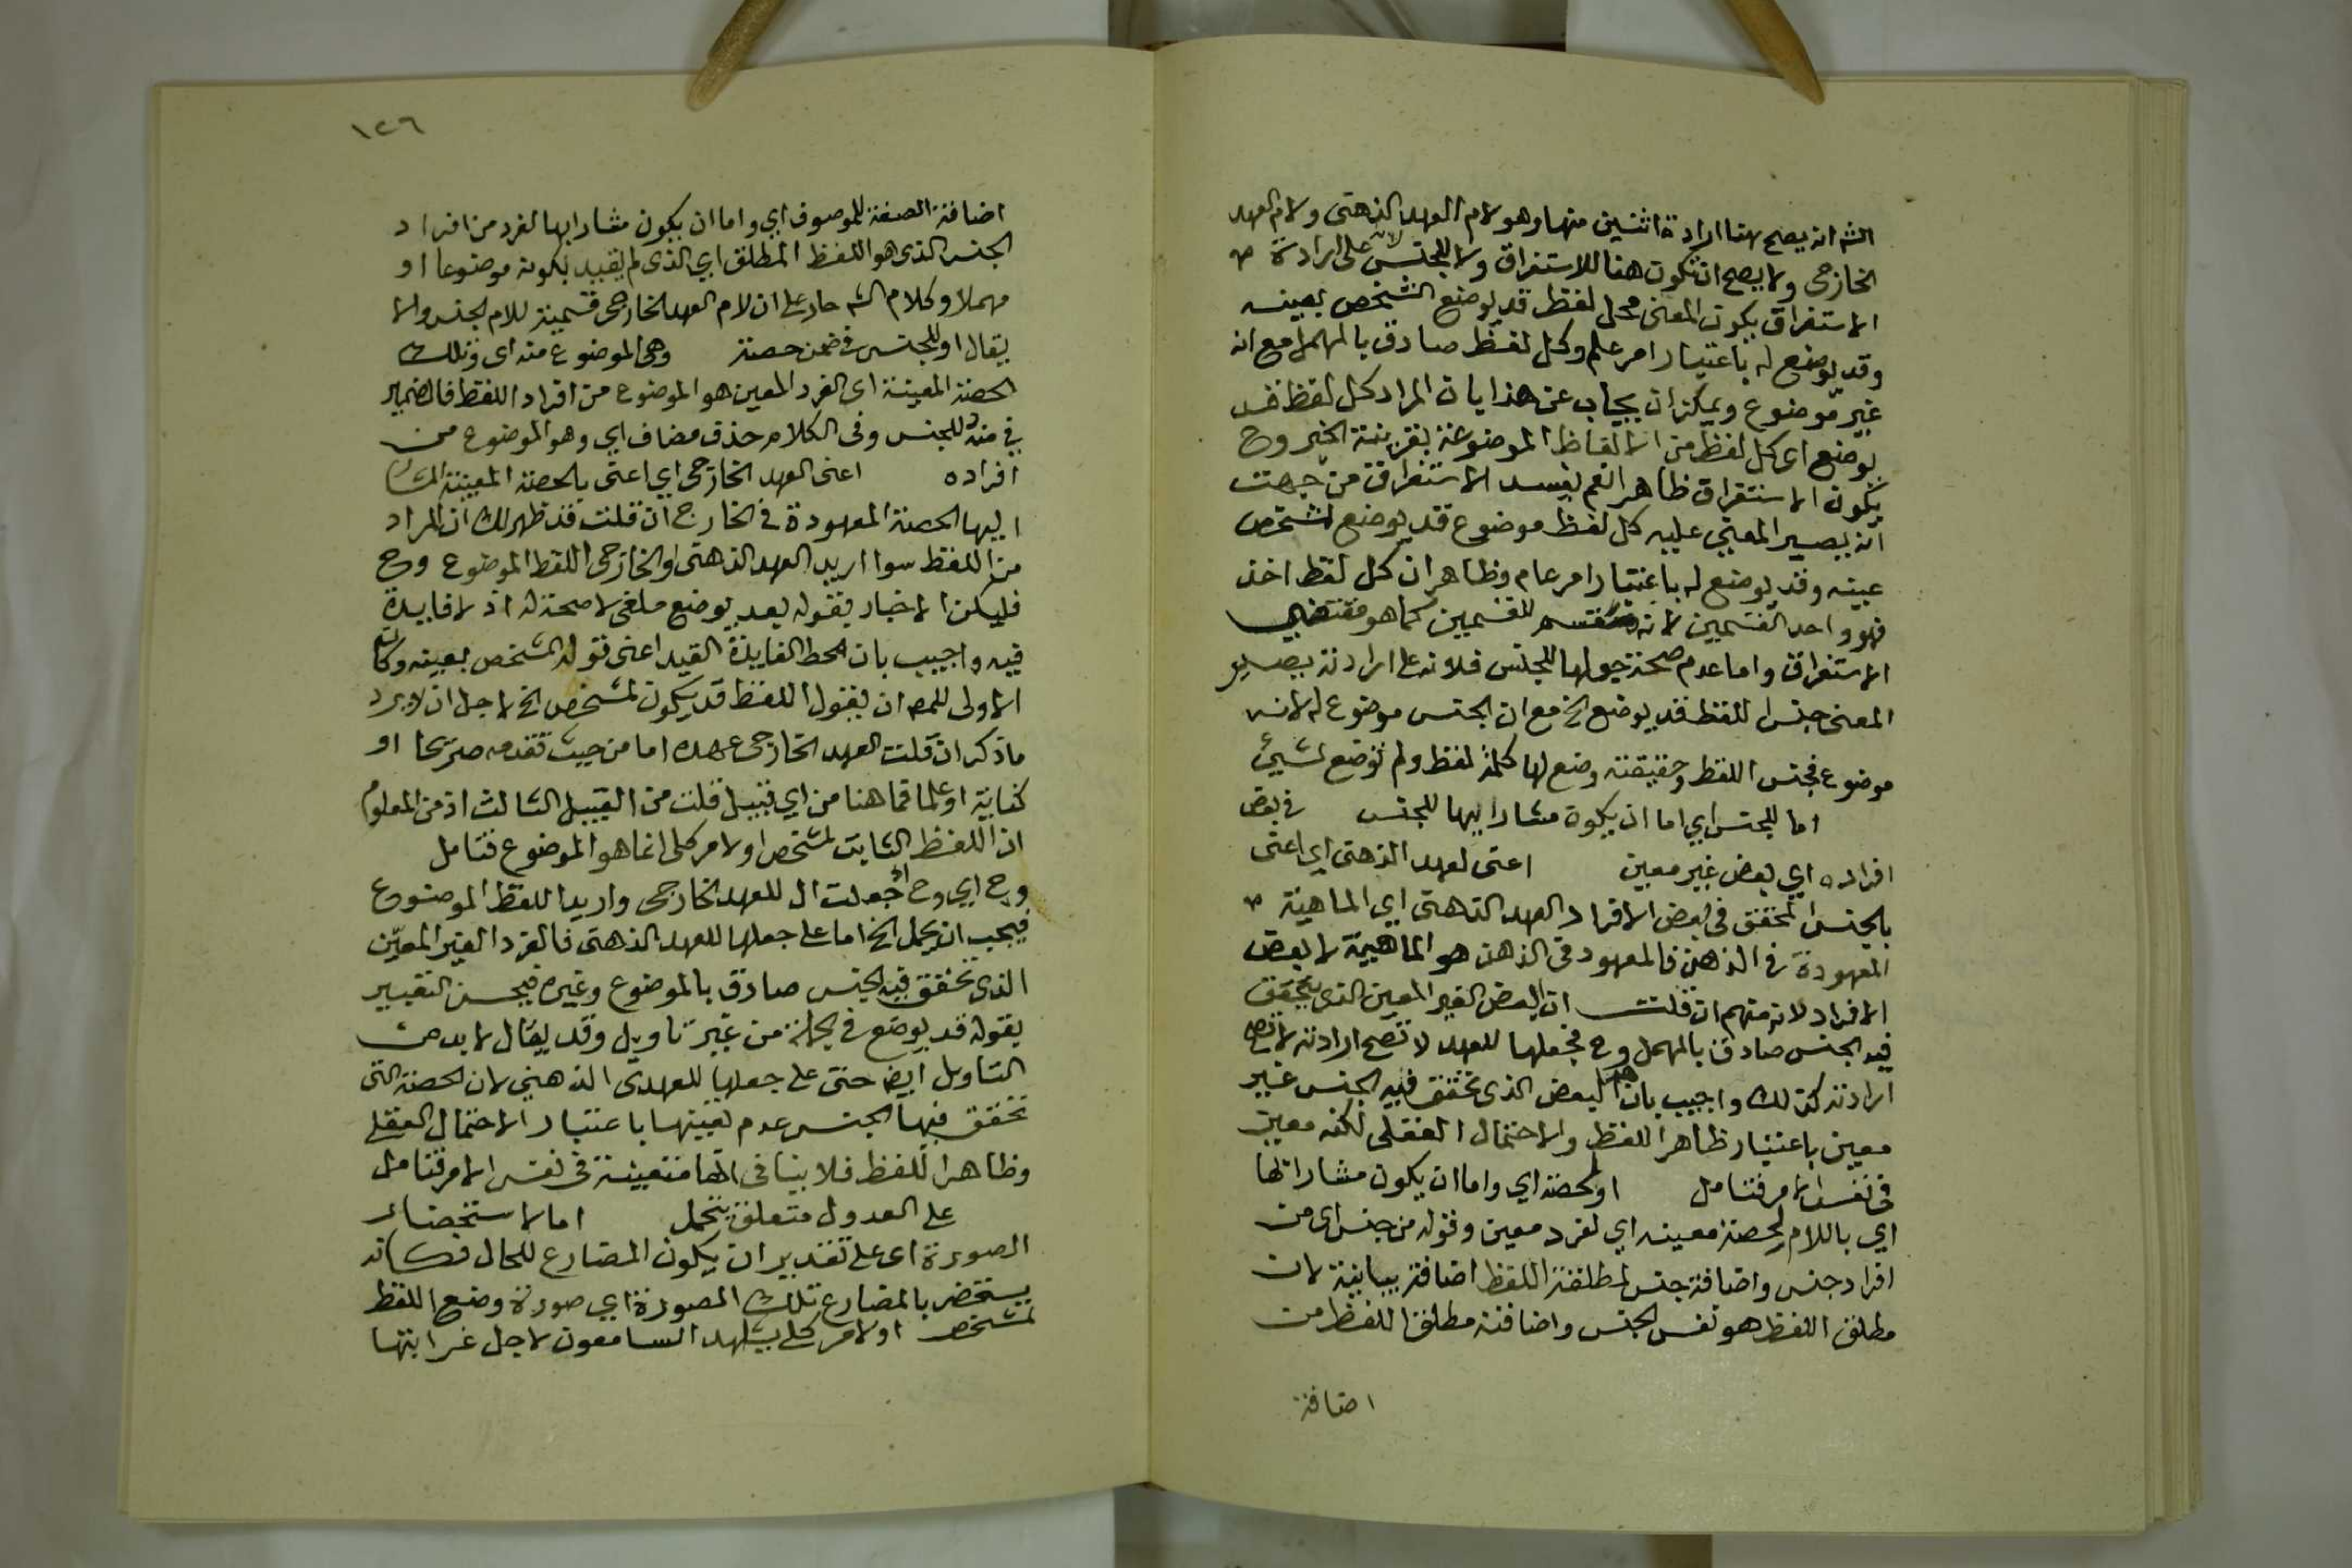 الش انه يصح هنا ارادة اثنين منها وهو لام العهد الذهنى ولام العهد
الخارجى ولا يصح ان تكون هنا للاستغراق ولا للجنس لانه على ارادة
الاستغراق يكون المعنى كل لفظ قد يوضع لشخص بعينه
وقد يوضع له باعتبار امر عام وكل لفظ صادق بالمهمل مع انه
غير موضوع ويمكن ان يجاب عن هذا بان المراد كل لفظ قد
يوضع اى كل لفظ من الالفاظ الموضوعة بقرينة الخبر وح
يكون الاستغراق ظاهرا نعم يفسد الاستغراق من جهة
انه يصير المعنى عليه كل لفظ موضوع قد يوضع لشخص
عينه وقد يوضع له باعتبار امر عام وظاهر ان كل لفظ اخذ
فهو واحد القسمين لا انه منقسم للقسمين كما هو مقتضى
الاستغراق واما عدم صحة جعلها للجنس فلانه على ارادته يصير
المعنى جنس اللفظ قد يوضع الخ مع ان الجنس موضوع له لانه
موضوع فجنس اللفظ وحقيقته وضع لها كلمة لفظ ولم توضع لشىء
اما للجنس اي اما ان يكون مشارا بها للجنس في بعض
افراده اي بعض غير معين اعنى لعهد الذهنى اي اعنى
بالجنس المحقق فى بعض الافراد العهد الذهنى اي الماهية
المعهودة فى الذهن فالمعهود فى الذهن هو الماهية لا بعض
الافراد لانه منهم ان قلت ان البعض الغير المعين الذى يتحقق
فيه الجنس صادق بالمهمل وح فجعلها للعهد لا تصح ارادته لا تصح
ارادته كذلك واجيب بان هذا البعض الذى تحقق فيه الجنس غير
معين باعتبار ظاهر اللفظ والاحتمال العقلى لكنه معين
فى نفس الامر فتامل او لحصة اي واما ان يكون مشارا بها
اي باللام لحصة معينه اي لفرد معين وقوله من جنس اى من
افراد جنس واضافة جنس لمطلق اللفظ اضافة بيانية لان
مطلق اللفظ هو نفس الجنس واضافة مطلق اللفظ من
اضافة
١٢٦
اضافة الصفة للموصوف اي واما ان يكون مشارا بها لفرد من افراد
الجنس الذى هو اللفظ المطلق اي الذى لم يقيد بكونه موضوعا او
مهملا وكلام الش جار على ان لام العهد الخارجى قسيمة للام الجنس والا
يقال او للجنس فى ضمن حصة وهى الموضوع منه اى وتلك
الحصة المعينة اى الفرد المعين هو الموضوع من افراد اللفظ فالضمير
في منه للجنس وفى الكلام حذف مضاف اي وهو الموضوع من
افراده اعنى العهد الخارجى اي اعنى بالحصة المعينة المشار
اليها الحصة المعهودة في الخارج ان قلت قد ظهر لك ان المراد
من اللفظ سوا اريد العهد الذهنى او الخارجى اللفظ الموضوع وح
فليكن الاخبار بقوله بعد يوضع ملغى لا صحة له اذ لا فايدة
فيه واجيب بان محط الفايدة القيد اعنى قوله لشخص بعينه وكان
الاولى للمص ان يقول اللفظ قد يكون لشخص الخ لاجل ان لا يرد
ما ذكر ان قلت العهد الخارجى عهده اما من حيث تقدمه صريحا او
كناية او علما فما هنا من اي قبيل قلت من القبيل الثالث اذ من المعلوم
ان اللفظ الثابت لشخص او لامر كلى انما هو الموضوع فتامل
وح اي وح اذ جعلت ال للعهد الخارجى واريد اللفظ الموضوع
فيجب ان يحمل الخ اما على جعلها للعهد الذهنى فالفرد الغير المعين
الذى تحقق فيه الجنس صادق بالموضوع وغيره فيحسن التعبير
بقوله قد يوضع في الجملة من غير تاويل وقد يقال لا بد من
التاويل ايضا حتى على جعلها للعهدى الذهنى لان الحصة التى
تحقق فيها الجنس عدم تعينها باعتبار الاحتمال العقلى
وظاهر اللفظ فلا ينافى انها متعينة فى نفس الامر فتامل
على العدول متعلق بيحمل اما لاستحضار
الصورة اى على تقدير ان يكون المضارع للحال فكانه
يستحضر بالمضارع تلك الصورة اي صورة وضع اللفظ
لشخص او لامر كلى يشاهد السامعون لاجل غرابتها